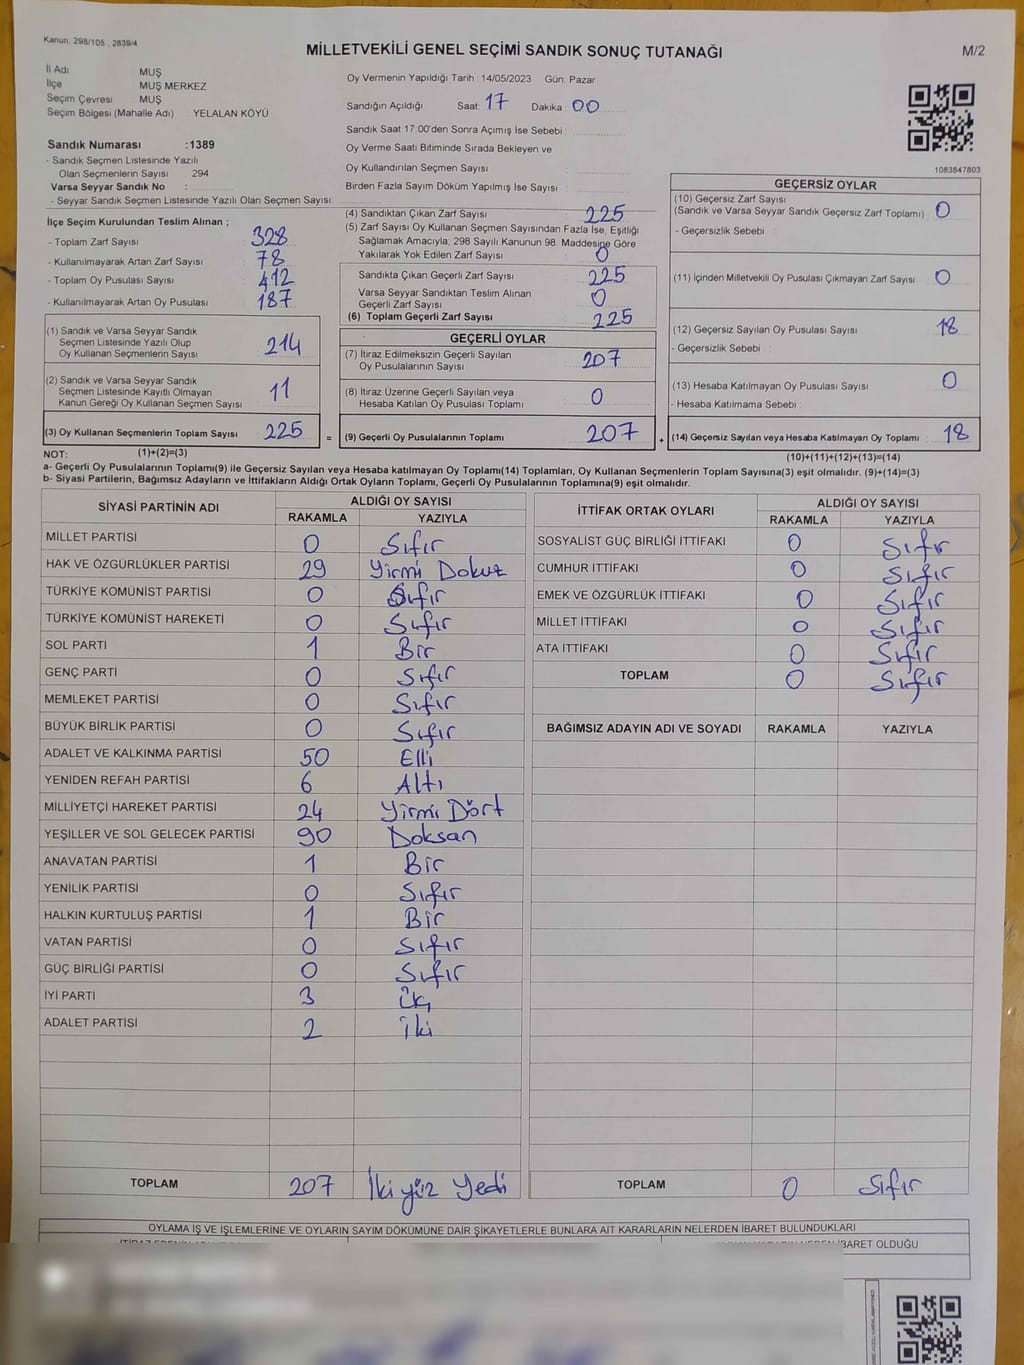 Kanun: 298/105 , 2839/4
MİLLETVEKİLİ GENEL SEÇİMİ SANDIK SONUÇ TUTANAĞI
M/2
İl Adı MUŞ
İlçe MUŞ MERKEZ
Seçim Çevresi MUŞ
Seçim Bölgesi (Mahalle Adı) YELALAN KÖYÜ
Sandık Numarası :1389
- Sandık Seçmen Listesinde Yazılı
Olan Seçmenlerin Sayısı 294
Varsa Seyyar Sandık No :
- Seyyar Sandık Seçmen Listesinde Yazılı Olan Seçmen Sayısı:
İlçe Seçim Kurulundan Teslim Alınan ;
- Toplam Zarf Sayısı 328
- Kullanılmayarak Artan Zarf Sayısı 78
- Toplam Oy Pusulası Sayısı 412
- Kullanılmayarak Artan Oy Pusulası 187
(1) Sandık ve Varsa Seyyar Sandık
Seçmen Listesinde Yazılı Olup
Oy Kullanan Seçmenlerin Sayısı 214
(2) Sandık ve Varsa Seyyar Sandık
Seçmen Listesinde Kayıtlı Olmayan
Kanun Gereği Oy Kullanan Seçmen Sayısı 11
(3) Oy Kullanan Seçmenlerin Toplam Sayısı 225 =
Oy Vermenin Yapıldığı Tarih : 14/05/2023 Gün: Pazar
Sandığın Açıldığı Saat: 17 Dakika : 00
Sandık Saat 17:00'den Sonra Açımış İse Sebebi :
Oy Verme Saati Bitiminde Sırada Bekleyen ve
Oy Kullandırılan Seçmen Sayısı :
Birden Fazla Sayım Döküm Yapılmış İse Sayısı :
(4) Sandıktan Çıkan Zarf Sayısı 225
(5) Zarf Sayısı Oy Kullanan Seçmen Sayısından Fazla İse, Eşitliği
Sağlamak Amacıyla; 298 Sayılı Kanunun 98. Maddesine Göre
Yakılarak Yok Edilen Zarf Sayısı 0
Sandıkta Çıkan Geçerli Zarf Sayısı 225
Varsa Seyyar Sandıktan Teslim Alınan
Geçerli Zarf Sayısı 0
(6) Toplam Geçerli Zarf Sayısı 225
GEÇERLİ OYLAR
(7) İtiraz Edilmeksizin Geçerli Sayılan
Oy Pusulalarının Sayısı 207
(8) İtiraz Üzerine Geçerli Sayılan veya
Hesaba Katılan Oy Pusulası Toplamı 0
(9) Geçerli Oy Pusulalarının Toplamı 207 +
1083847803
GEÇERSİZ OYLAR
(10) Geçersiz Zarf Sayısı
(Sandık ve Varsa Seyyar Sandık Geçersiz Zarf Toplamı) 0
- Geçersizlik Sebebi :
(11) İçinden Milletvekili Oy Pusulası Çıkmayan Zarf Sayısı : 0
(12) Geçersiz Sayılan Oy Pusulası Sayısı : 18
- Geçersizlik Sebebi :
(13) Hesaba Katılmayan Oy Pusulası Sayısı : 0
- Hesaba Katılmama Sebebi :
(14) Geçersiz Sayılan veya Hesaba Katılmayan Oy Toplamı : 18
NOT: (1)+(2)=(3) (10)+(11)+(12)+(13)=(14)
a- Geçerli Oy Pusulalarının Toplamı(9) ile Geçersiz Sayılan veya Hesaba katılmayan Oy Toplamı(14) Toplamları, Oy Kullanan Seçmenlerin Toplam Sayısına(3) eşit olmalıdır. (9)+(14)=(3)
b- Siyasi Partilerin, Bağımsız Adayların ve İttifakların Aldığı Ortak Oyların Toplamı, Geçerli Oy Pusulalarının Toplamına(9) eşit olmalıdır.
SİYASİ PARTİNİN ADI ALDIĞI OY SAYISI
RAKAMLA YAZIYLA
MİLLET PARTİSİ 0 Sıfır
HAK VE ÖZGÜRLÜKLER PARTİSİ 29 Yirmi Dokuz
TÜRKİYE KOMÜNİST PARTİSİ 0 Sıfır
TÜRKİYE KOMÜNİST HAREKETİ 0 Sıfır
SOL PARTİ 1 Bir
GENÇ PARTİ 0 Sıfır
MEMLEKET PARTİSİ 0 Sıfır
BÜYÜK BİRLİK PARTİSİ 0 Sıfır
ADALET VE KALKINMA PARTİSİ 50 Elli
YENİDEN REFAH PARTİSİ 6 Altı
MİLLİYETÇİ HAREKET PARTİSİ 24 Yirmi Dört
YEŞİLLER VE SOL GELECEK PARTİSİ 90 Doksan
ANAVATAN PARTİSİ 1 Bir
YENİLİK PARTİSİ 0 Sıfır
HALKIN KURTULUŞ PARTİSİ 1 Bir
VATAN PARTİSİ 0 Sıfır
GÜÇ BİRLİĞİ PARTİSİ 0 Sıfır
İYİ PARTİ 3 Üç
ADALET PARTİSİ 2 İki
TOPLAM 207 İkiyüz Yedi
İTTİFAK ORTAK OYLARI ALDIĞI OY SAYISI
RAKAMLA YAZIYLA
SOSYALİST GÜÇ BİRLİĞİ İTTİFAKI 0 Sıfır
CUMHUR İTTİFAKI 0 Sıfır
EMEK VE ÖZGÜRLÜK İTTİFAKI 0 Sıfır
MİLLET İTTİFAKI 0 Sıfır
ATA İTTİFAKI 0 Sıfır
TOPLAM 0 Sıfır
BAĞIMSIZ ADAYIN ADI VE SOYADI RAKAMLA YAZIYLA
TOPLAM 0 Sıfır
OYLAMA İŞ VE İŞLEMLERİNE VE OYLARIN SAYIM DÖKÜMÜNE DAİR ŞİKAYETLERLE BUNLARA AİT KARARLARIN NELERDEN İBARET BULUNDUKLARI
İBARET OLDUĞU